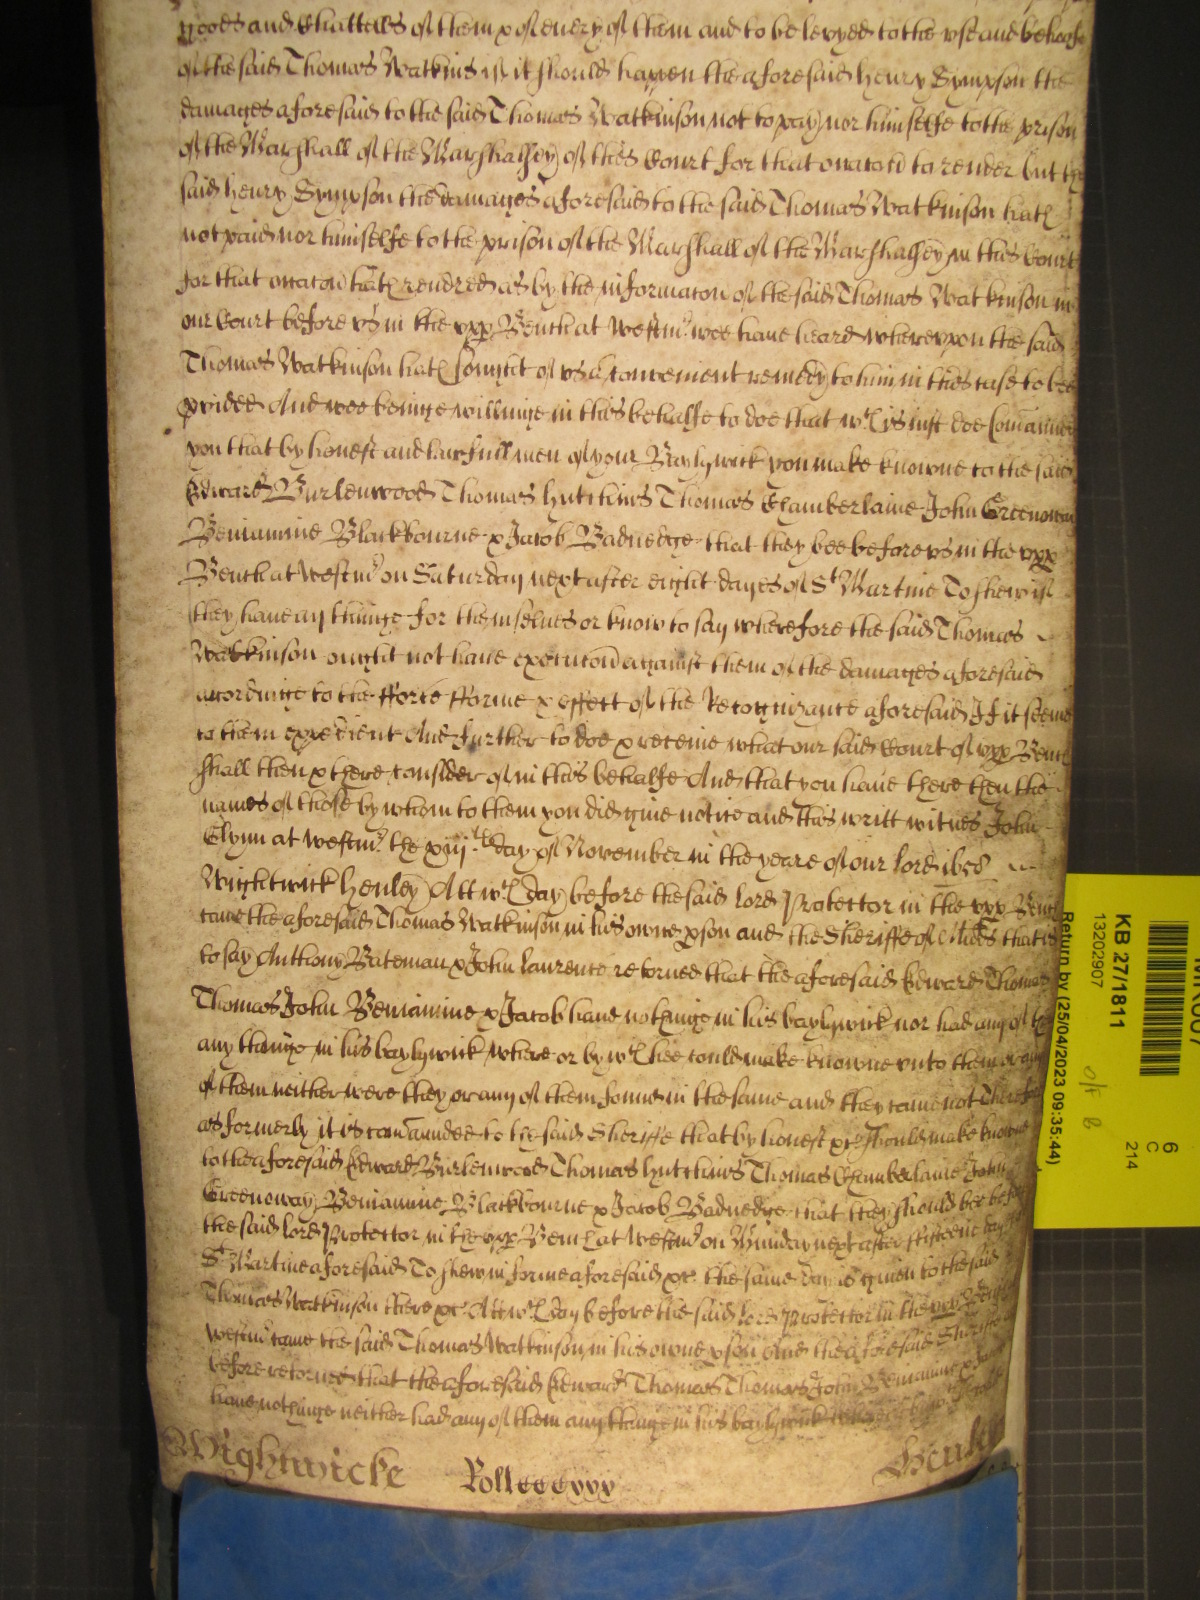 goods and Chattells of them & of every of them and to be levyed to the vse and behalfe
of the said Thomas Watkins if it should happen the aforesaid Henry Sympson the
damages aforesaid to the said Thomas Watkinson not to pay nor himselfe to the prison
of the Marshall of the Marshalsey of this Court for that occacon to render but the
said Henry Sympson the damages aforesaid to the said Thomas Watkinson hath
not paid nor himselfe to the prison of the Marshall of the Marshalsey in this Court
for that occacon hath rendred as by the informacon of the said Thomas Watkinson in
our Court before vs in the vpp Bench at Westmr wee haue heard wherevpon the said
Thomas Watkinson hath sought of vs a convenient remedy to him in this case to bee
pvided And wee beinge willinge in this behalfe to doe that wch is iust doe comaund
you that by honest and lawfull men of your Baylywick you make knowne to the said
Edward Burlenwood Thomas Hutchins Thomas Chamberlaine John Greenoway
Beniamine Blackbourne & Jacob Badnedge that they bee before vs in the vpp
Bench at Westmr on Saturday next after eight dayes of St Martine To shew if
they haue any thinge for themselues or know to say wherefore the said Thomas
Watkinson ought not haue execucon against them of the damages aforesaid
accordinge to the fforce fforme & effect of the Recognizance aforesaid If it seeme
to them expedient And further to doe & receiue what our said Court of vpp Bench
shall then & there consider of in this behalfe And that you haue there then the
names of those by whom to them you did giue notice and this writt witnes John
Glynn at Westmr the xiijth day of November in the yeare of our lord
Wightwick Henley Att wch day before the said lord Protector in the vpp Bench
came the aforesaid Thomas Watkinson in his owne pson and the Sheriffe of Midds that is
to say Anthony Bateman & John Laurence retorned that the aforesaid Edward Thomas
Thomas John Beniamine & Jacob haue nothinge in his baylywick nor had any of
any thinge in his baylywick where or by wch hee could make knowne vnto them or any
of them neither were they or any of them found in the same and they came not Therefore
as formerly it is comaunded to the said Sheriffe that by honest &c should make knowne
to the aforesaid Edward Burlenwood Thomas Hutchins Thomas Chamberlaine John
Greenoway Beniamine Blackbourne & Jacob Badnedge that they should bee before
the said lord Protector in the vpp Bench at Westmr on Munday next after fifteene dayes
St Martine aforesaid To shew in forme aforesaid &c. the same day is giuen to the said
Thomas Watkinson there &c. Att wch day before the said lord Protector in the vpp Bench
Westmr came the said Thomas Watkinson in his owne pson And the aforesaid Sheriffe
before retorned that the aforesaid Edward Thomas Thomas John Beniamine &
haue nothinge neither had any of them any thinge in his baylywick
Wightwicke Roll cccxxx Henley
KB 27/1811
13202907
Return by (25/04/2023 09:35:44)
6
C
214